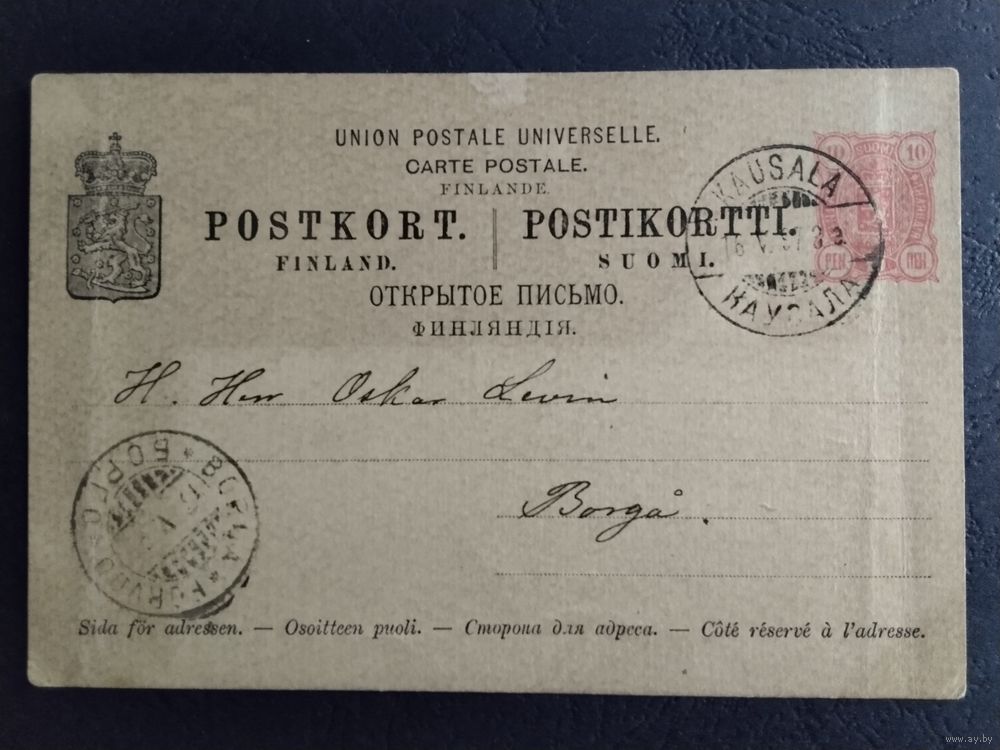 UNION POSTALE UNIVERSELLE.
CARTE POSTALE.
FINLANDE.
POSTKORT. POSTIKORTTI.
FINLAND. SUOMI.
ОТКРЫТОЕ ПИСЬМО.
ФИНЛЯНДІЯ.
10 SUOMI 10
PEN ПЕН
KAUSALA
КАУСАЛА
H. Herr Oskar Levin
Borgå.
BORGÅ * PORVOO * БОРГО
Sida för adressen. — Osoitteen puoli. — Сторона для адреса. — Côté réservé à l'adresse.
www.ay.by